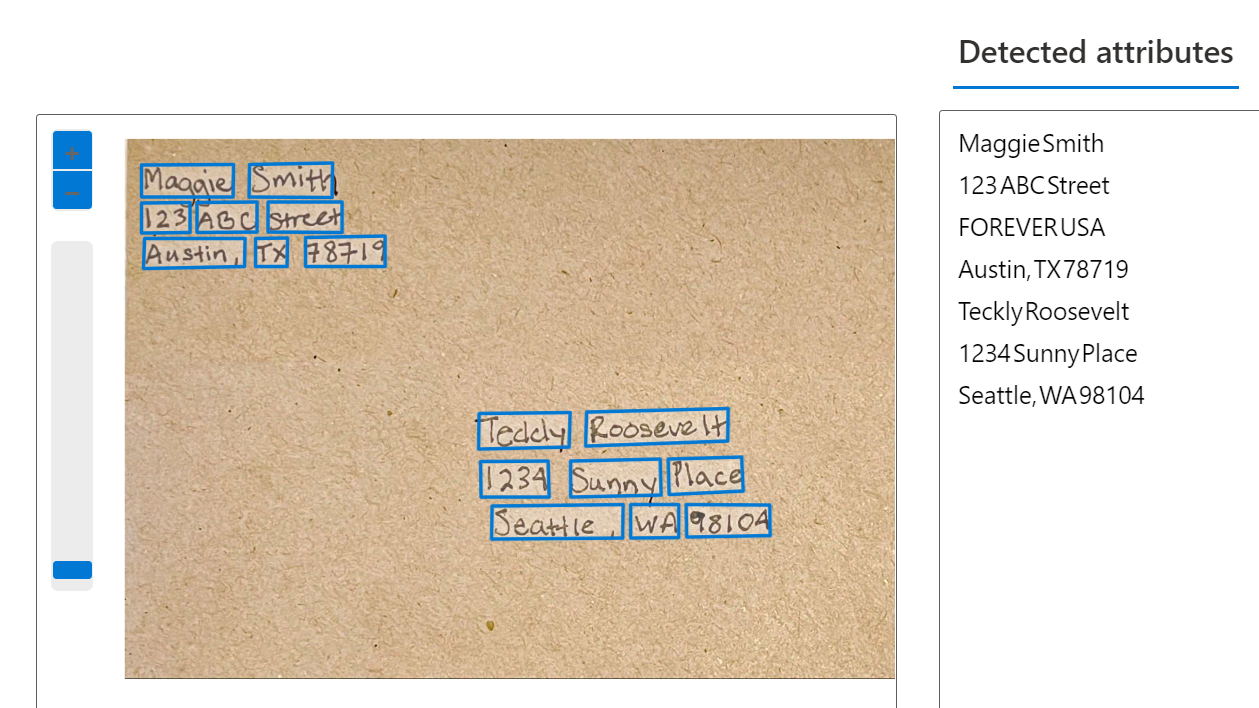 Detected attributes
+
-
Maggie Smith
123 ABC Street
Austin, TX 78719
Teddy Roosevelt
1234 Sunny Place
Seattle, WA 98104
Maggie Smith
123 ABC Street
FOREVER USA
Austin, TX 78719
Teckly Roosevelt
1234 Sunny Place
Seattle, WA 98104